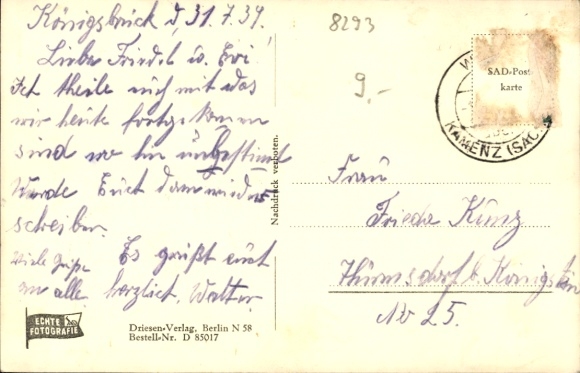 Königsbrück d, 31.7.39.
Liebe Friedel u. Evi!
Ich theile euch mit das
wir heute fortgekommen
sind wo hin unbestimmt
Würde Euch dann wieder
schreiben.
Es grüßt euch
viele Grüße
an alle herzlichst, Walter.
ECHTE
FOTOGRAFIE
Driesen-Verlag, Berlin N 58
Bestell-Nr. D 85017
Nachdruck verboten.
8293
9.-
SAD-Post
karte
KAMENZ (SACHS
Frau
Frieda Kunz
Thürmsdorf b. Königstein
No 25.